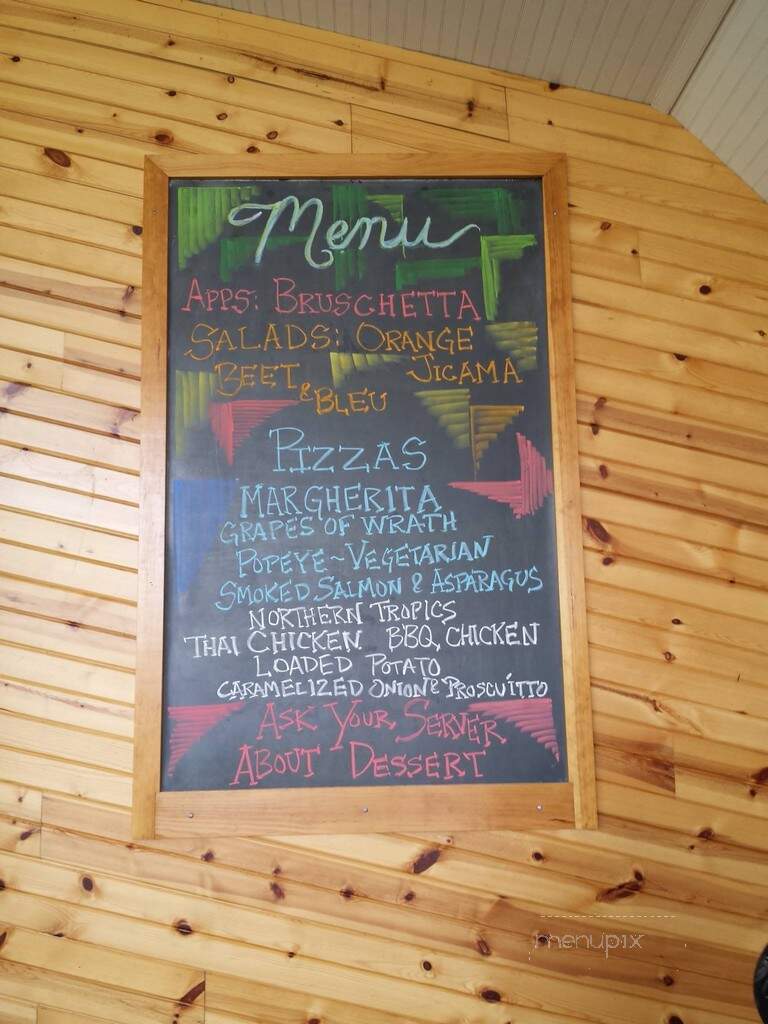 Menu
APPS: BRUSCHETTA
SALADS: ORANGE
BEET & BLEU JICAMA
PIZZAS
MARGHERITA
GRAPES OF WRATH
POPEYE ~ VEGETARIAN
SMOKED SALMON & ASPARAGUS
NORTHERN TROPICS
THAI CHICKEN BBQ CHICKEN
LOADED POTATO
CARAMELIZED ONION & PROSCUITTO
ASK YOUR SERVER
ABOUT DESSERT
menupix